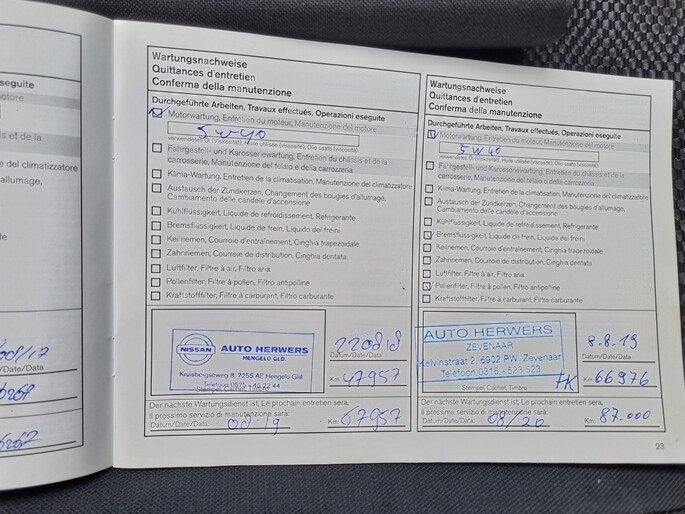 eseguite
motore
s et de la
climatizzatore
allumage,
08/17
Wartungsnachweise
Quittances d'entretien
Conferma della manutenzione
Durchgeführte Arbeiten, Travaux effectués, Operazioni eseguite
Motorwartung, Entretien du moteur, Manutenzione del motore
5W40
verwendetes Öl (Viskosität), Huile utilisée (viscosité), Olio usato (viscosità)
Fahrgestell- und Karosseriewartung, Entretien du châssis et de la
carrosserie, Manutenzione del telaio e della carrozzeria
Klima-Wartung, Entretien de la climatisation, Manutenzione del climatizzatore
Austausch der Zündkerzen, Changement des bougies d'allumage,
Cambiamento delle candele d'accensione
Kühlflüssigkeit, Liquide de refroidissement, Refrigerante
Bremsflüssigkeit, Liquide de frein, Liquido dei freini
Keilriemen, Courroie d'entraînement, Cinghia trapezoidale
Zahnriemen, Courroie de distribution, Cinghia dentata
Luftfilter, Filtre à air, Filtro aria
Pollenfilter, Filtre à pollen, Filtro antipolline
Kraftstofffilter, Filtre à carburant, Filtro carburante
NISSAN AUTO HERWERS
HENGELO GLD.
Kruisbergseweg 8, 7255 AE Hengelo Gld.
Telefoon 0575 - 46 22 44
Stempel, Cachet, Timbro
220818
Datum/Date/Data
Km 47957
Der nächste Wartungsdienst ist, Le prochain entretien sera,
Il prossimo servizio di manutenzione sarà:
Datum/Date/Data: 08-19 Km 67957
Wartungsnachweise
Quittances d'entretien
Conferma della manutenzione
Durchgeführte Arbeiten, Travaux effectués, Operazioni eseguite
Motorwartung, Entretien du moteur, Manutenzione del motore
5W40
verwendetes Öl (Viskosität), Huile utilisée (viscosité), Olio usato (viscosità)
Fahrgestell- und Karosseriewartung, Entretien du châssis et de la
carrosserie, Manutenzione del telaio e della carrozzeria
Klima-Wartung, Entretien de la climatisation, Manutenzione del climatizzatore
Austausch der Zündkerzen, Changement des bougies d'allumage,
Cambiamento delle candele d'accensione
Kühlflüssigkeit, Liquide de refroidissement, Refrigerante
Bremsflüssigkeit, Liquide de frein, Liquido dei freini
Keilriemen, Courroie d'entraînement, Cinghia trapezoidale
Zahnriemen, Courroie de distribution, Cinghia dentata
Luftfilter, Filtre à air, Filtro aria
Pollenfilter, Filtre à pollen, Filtro antipolline
Kraftstofffilter, Filtre à carburant, Filtro carburante
AUTO HERWERS
ZEVENAAR
Kelvinstraat 2, 6902 PW Zevenaar
Telefoon 0316 - 523 523
Stempel, Cachet, Timbro
8.8.19
Datum/Date/Data
HK
Km 66976
Der nächste Wartungsdienst ist, Le prochain entretien sera,
Il prossimo servizio di manutenzione sarà:
Datum/Date/Data: 08/20 Km 87.000
23